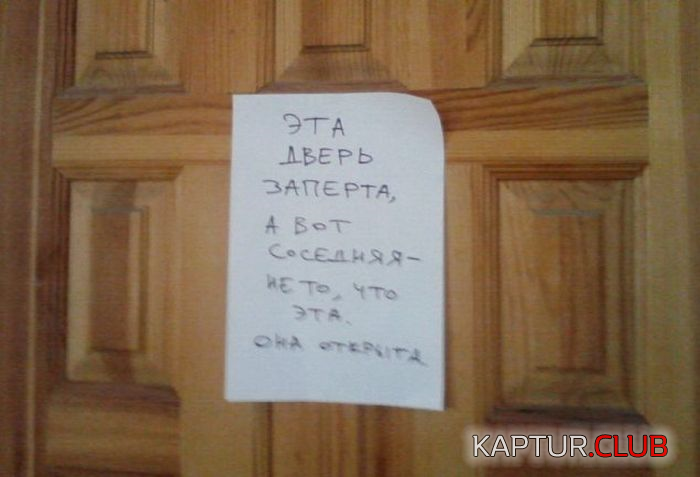 ЭТА
ДВЕРЬ
ЗАПЕРТА,
А ВОТ
СОСЕДНЯЯ–
НЕ ТО, ЧТО
ЭТА.
ОНА ОТКРЫТА
KAPTUR.CLUB